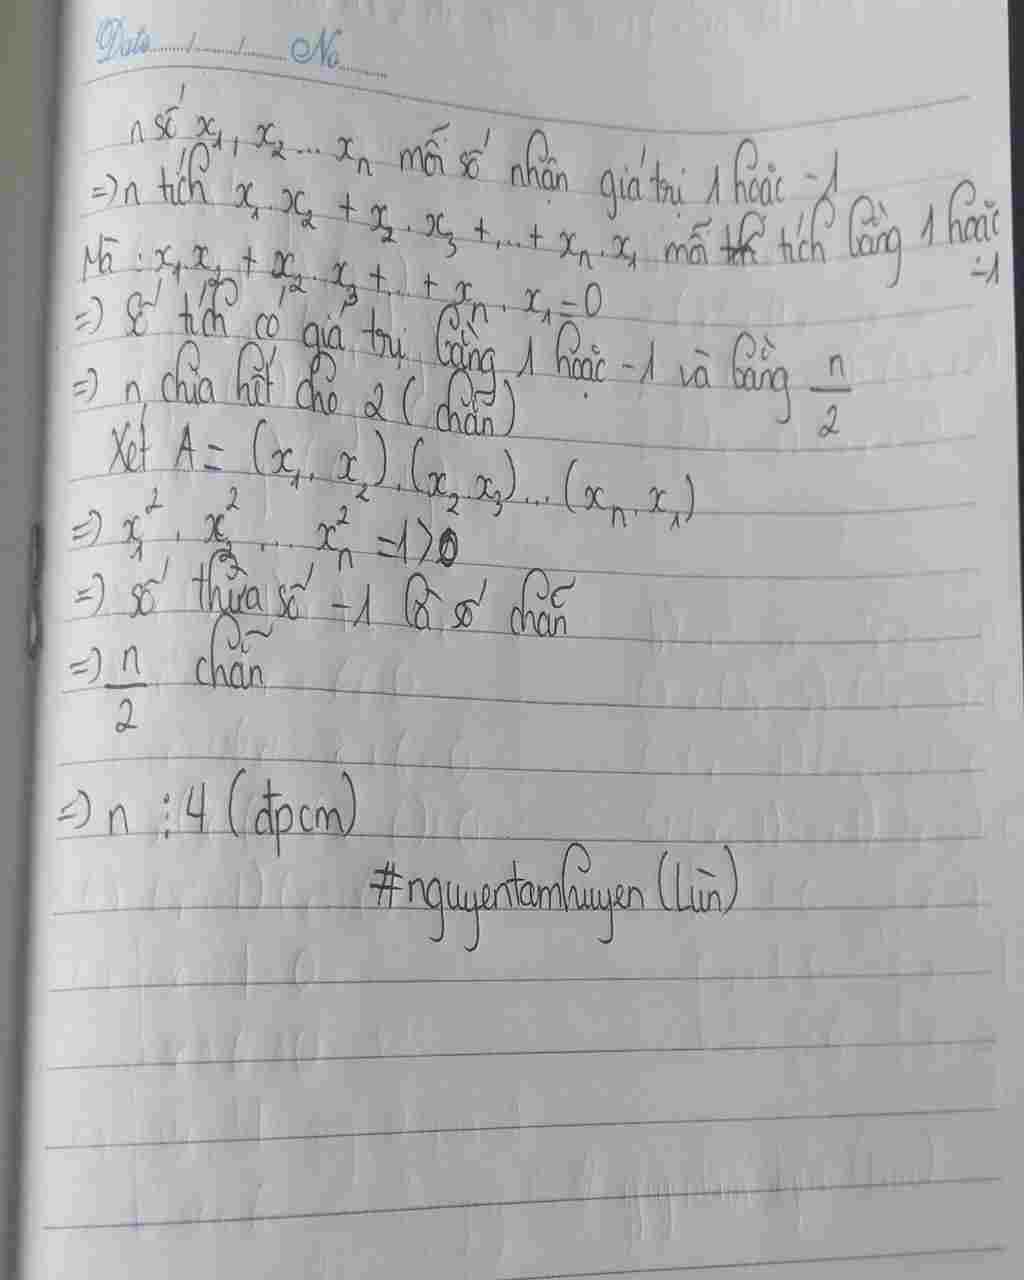 Date ...../...../..... No .....
n số x₁, x₂ ... xₙ mỗi số nhận giá trị 1 hoặc -1
=> n tích x₁.x₂ + x₂.x₃ +...+ xₙ.x₁ mỗi tích bằng 1 hoặc -1
Mà : x₁.x₂ + x₂.x₃ +...+ xₙ.x₁ = 0
=> số tích có giá trị bằng 1 hoặc -1 và bằng n/2
=> n chia hết cho 2 (chẵn)
Xét A = (x₁.x₂).(x₂.x₃)...(xₙ.x₁)
=> x₁².x₂²...xₙ² = 1 > 0
=> số thừa số -1 là số chẵn
=> n/2 chẵn
=> n ⋮ 4 (đpcm)
#nguyentamhuyen (Lùn)